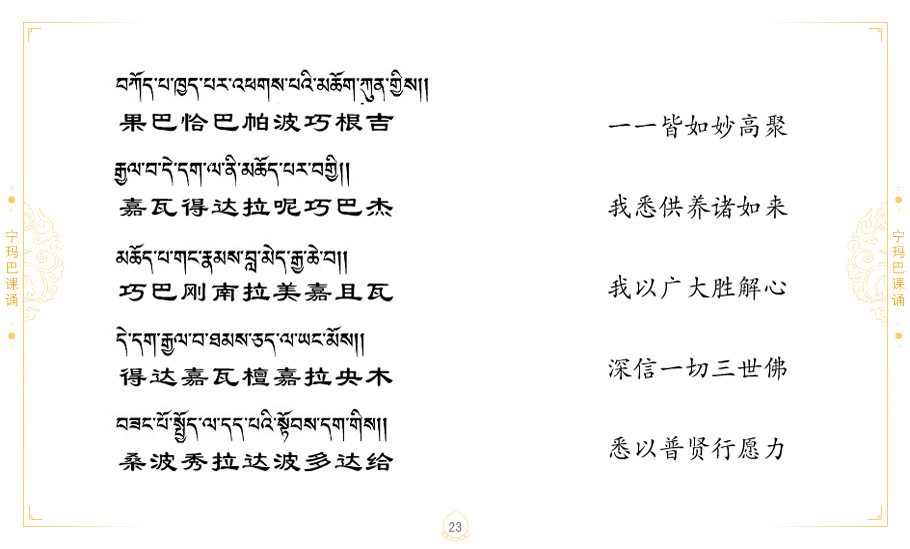 བཀོད་པ་ཁྱད་པར་འཕགས་པའི་མཆོག་ཀུན་གྱིས།།
果巴恰巴帕波巧根吉
一一皆如妙高聚
རྒྱལ་བ་དེ་དག་ལ་ནི་མཆོད་པར་བགྱི།།
嘉瓦得达拉呢巧巴杰
我悉供养诸如来
མཆོད་པ་གང་རྣམས་བླ་མེད་རྒྱ་ཆེ་བ།།
巧巴刚南拉美嘉且瓦
我以广大胜解心
དེ་དག་རྒྱལ་བ་ཐམས་ཅད་ལ་ཡང་མོས།།
得达嘉瓦檀嘉拉央木
深信一切三世佛
བཟང་པོ་སྤྱོད་ལ་དད་པའི་སྟོབས་དག་གིས།།
桑波秀拉达波多达给
悉以普贤行愿力
宁玛巴课诵
宁玛巴课诵
23